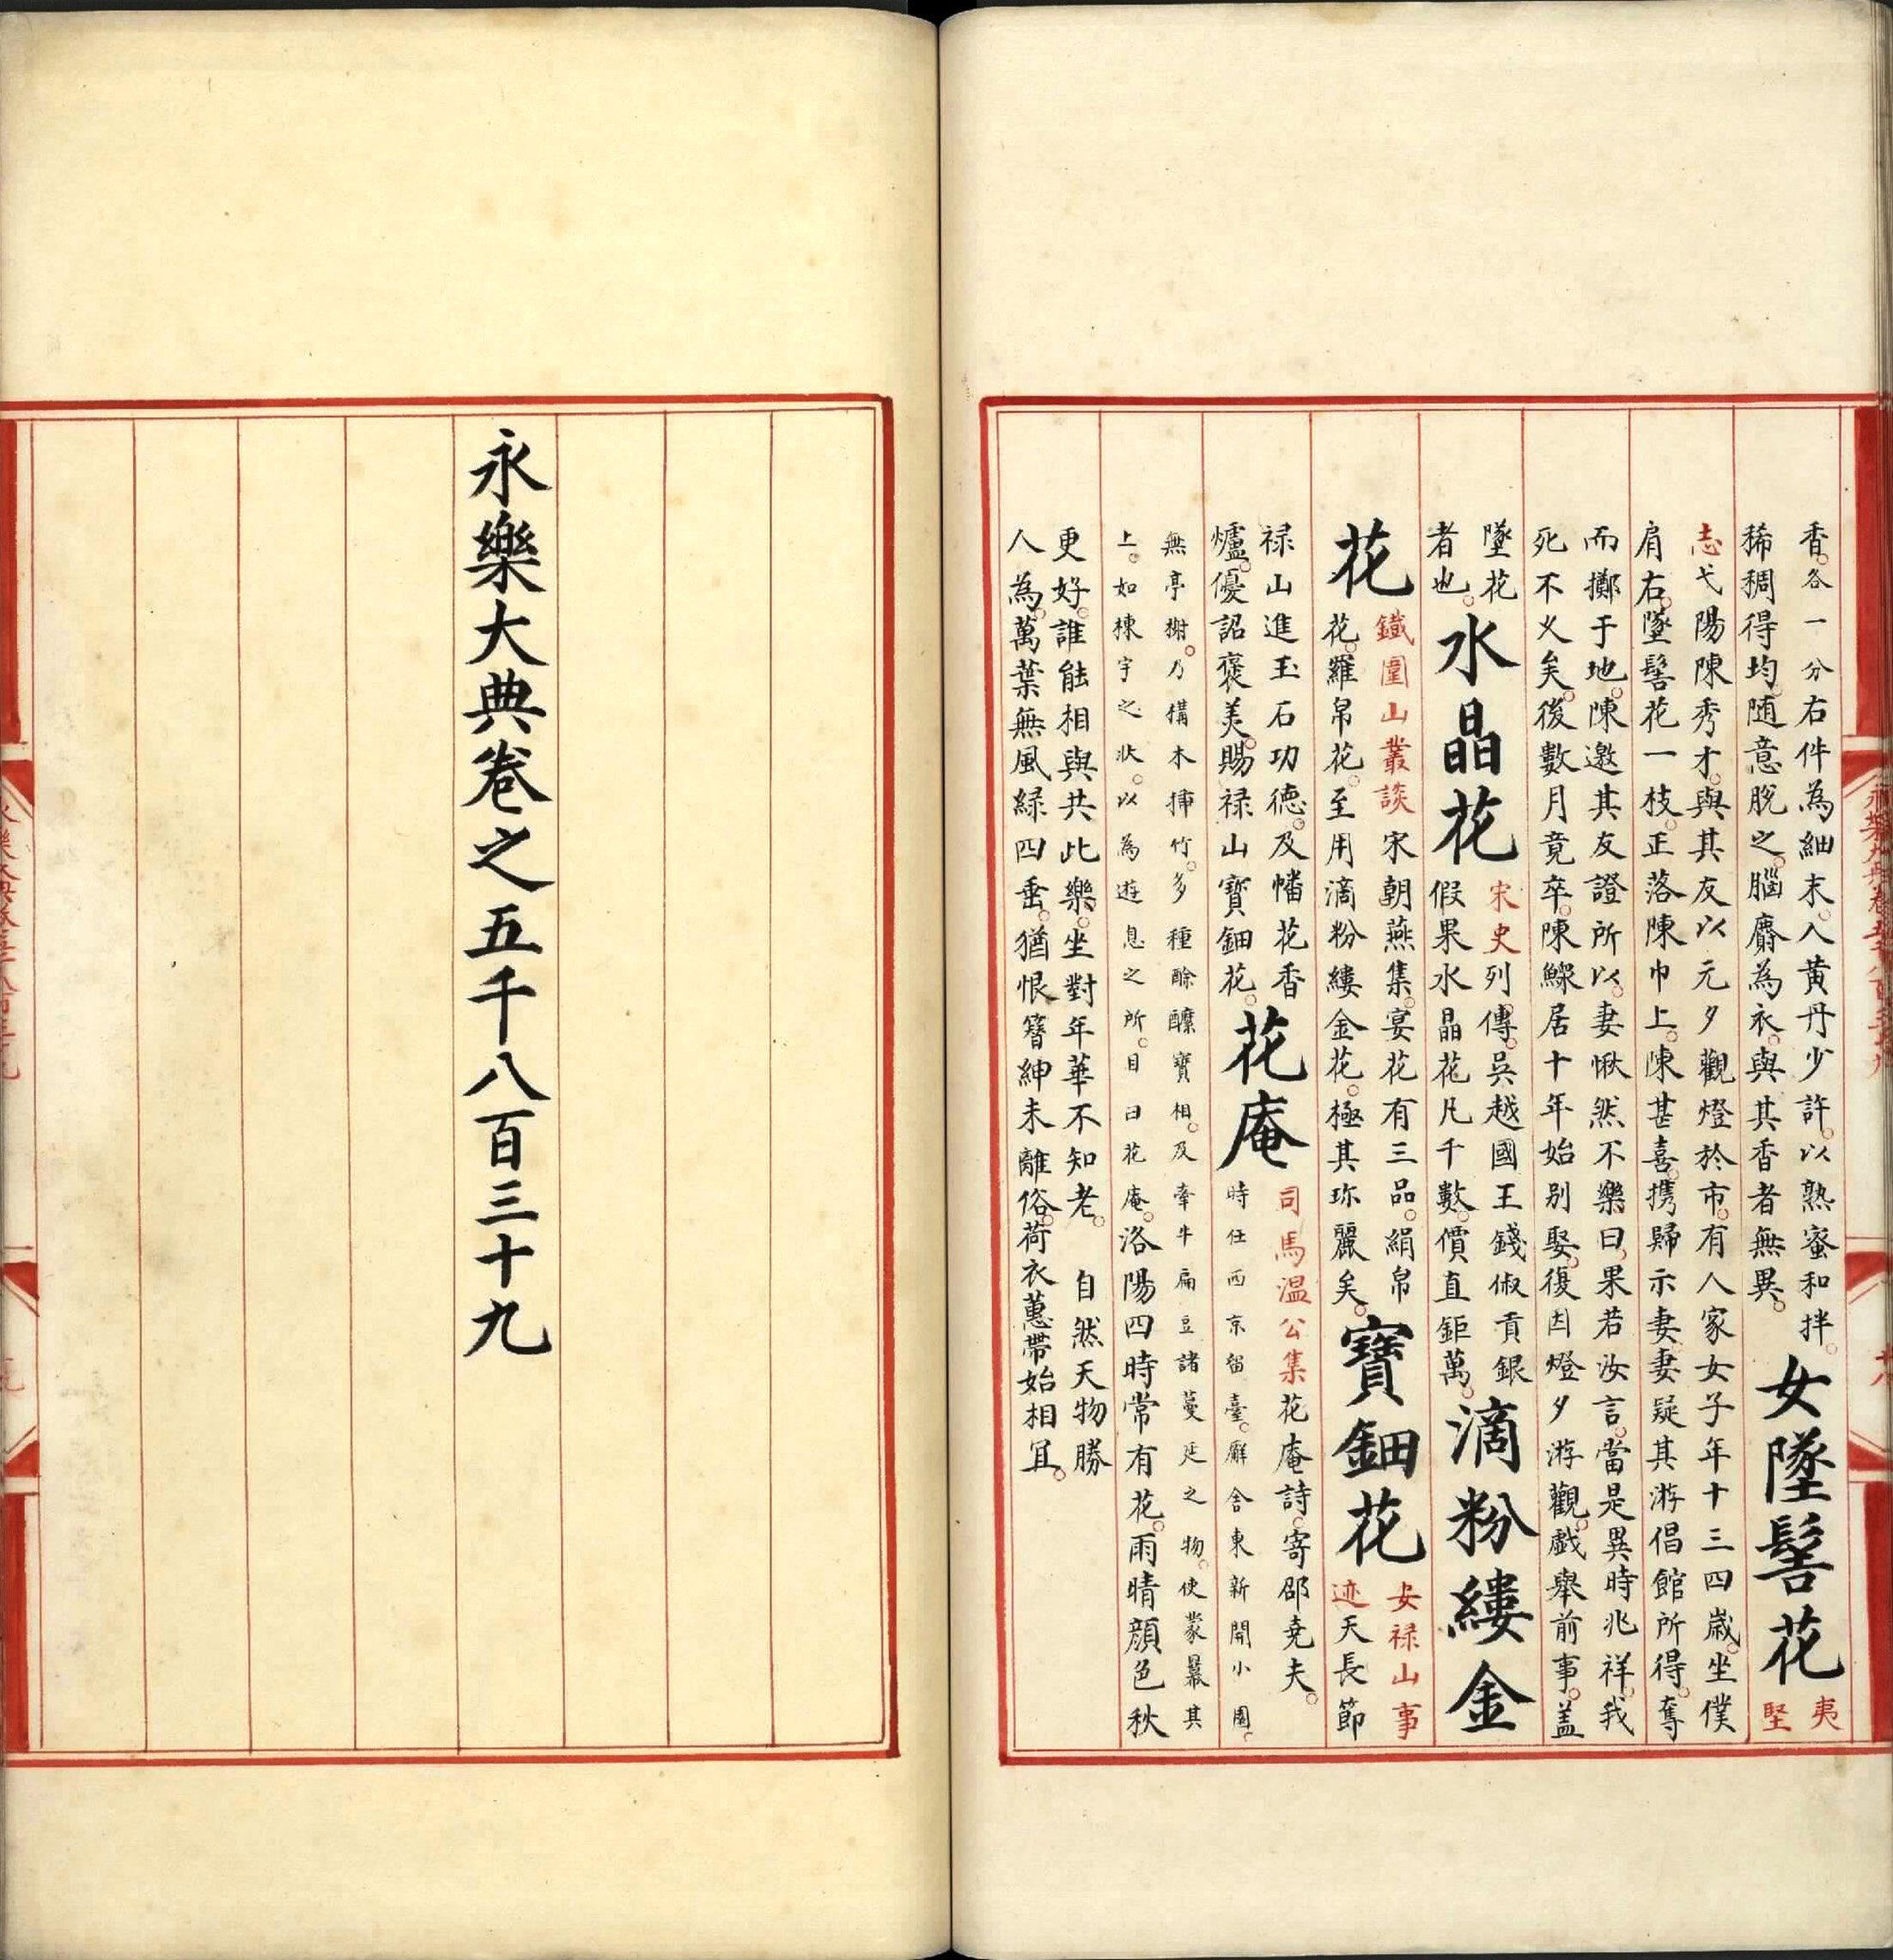 香各一分右件為細末入黃丹少許以熟蜜和拌
稀稠得均随意脫之腦麝為衣與其香者無異
女墜髻花
夷堅
志弋陽陳秀才與其友以元夕觀燈於市有人家女子年十三四歲坐僕
肩右墜髻花一枝正落陳巾上陳甚喜携歸示妻妻疑其游倡館所得奪
而擲于地陳邀其友證所以妻愀然不樂曰果若汝言當是異時兆祥我
死不乆矣後數月竟卒陳鰥居十年始别娶復因燈夕游觀戲舉前事盖
墜花
者也
水晶花
宋史列傳吳越國王錢俶貢銀
假果水晶花凡千數價直鉅萬
滴粉縷金
花
鐵圍山叢談宋朝燕集宴花有三品絹帛
花羅帛花至用滴粉縷金花極其珎麗矣
寶鈿花
安禄山事
迹天長節
禄山進玉石功德及幡花香
爐優詔褒美賜禄山寶鈿花
花庵
司馬温公集花庵詩寄邵堯夫
時任西京留臺廨舍東新開小園
無亭榭乃構木揷竹多種酴醿寶相及牽牛扁豆諸蔓延之物使蒙羃其
上如棟宇之狀以為遊息之所目曰花庵洛陽四時常有花雨晴顔色秋
更好誰能相與共此樂坐對年華不知老 自然天物勝
人為萬葉無風緑四垂猶恨簪紳未離俗荷衣蕙帶始相冝
永樂大典卷之五千八百三十九